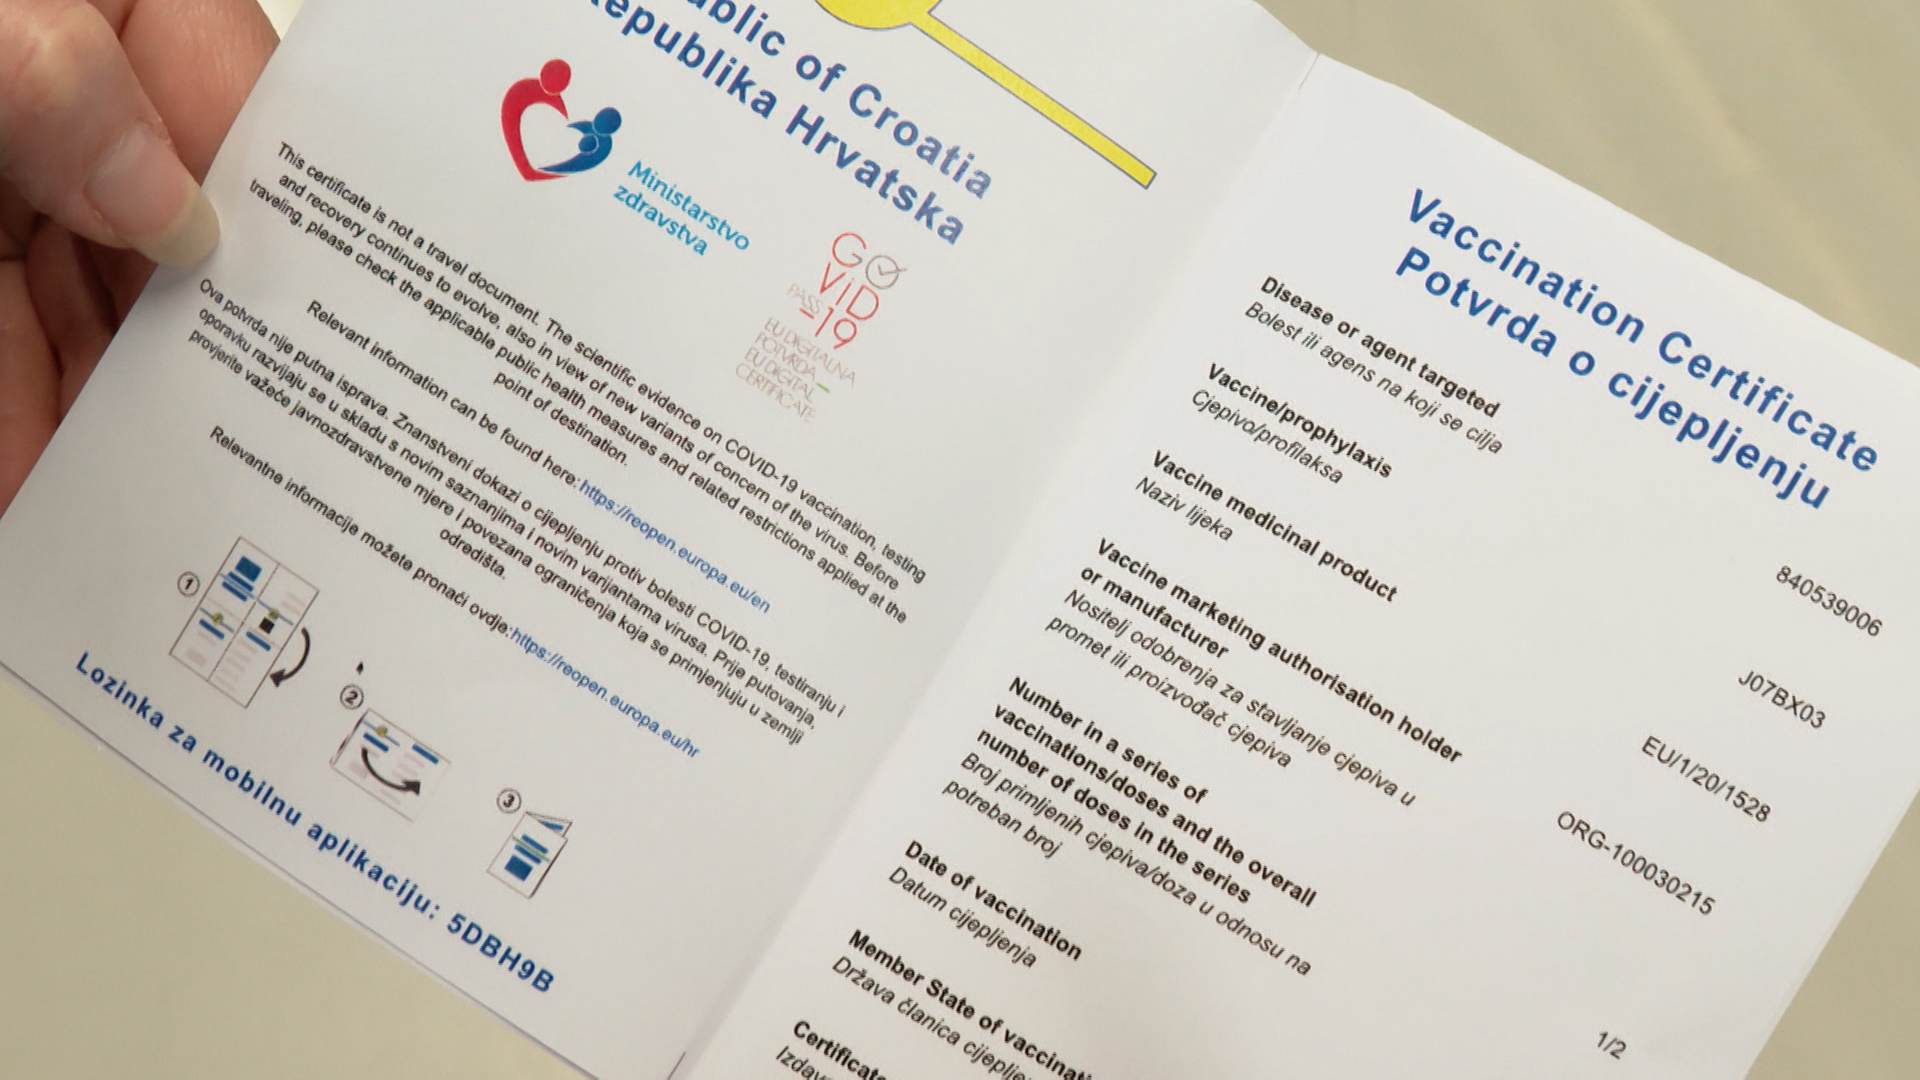 of Croatia
Republika Hrvatska
Ministarstvo
zdravstva
GO
ViD
PASS -19
EU DIGITALNA
POTVRDA
EU DIGITAL
CERTIFICATE
This certificate is not a travel document. The scientific evidence on COVID-19 vaccination, testing
and recovery continues to evolve, also in view of new variants of concern of the virus. Before
traveling, please check the applicable public health measures and related restrictions applied at the
point of destination.
Relevant information can be found here: https://reopen.europa.eu/en
Ova potvrda nije putna isprava. Znanstveni dokazi o cijepljenju protiv bolesti COVID-19, testiranju i
oporavku razvijaju se u skladu s novim saznanjima i novim varijantama virusa. Prije putovanja,
provjerite važeće javnozdravstvene mjere i povezana ograničenja koja se primjenjuju u zemlji
odredišta.
Relevantne informacije možete pronaći ovdje: https://reopen.europa.eu/hr
1
2
3
Lozinka za mobilnu aplikaciju: 5DBH9B
Vaccination Certificate
Potvrda o cijepljenju
Disease or agent targeted
Bolest ili agens na koji se cilja
840539006
Vaccine/prophylaxis
Cjepivo/profilaksa
J07BX03
Vaccine medicinal product
Naziv lijeka
EU/1/20/1528
Vaccine marketing authorisation holder
or manufacturer
Nositelj odobrenja za stavljanje cjepiva u
promet ili proizvođač cjepiva
ORG-100030215
Number in a series of
vaccinations/doses and the overall
number of doses in the series
Broj primljenih cjepiva/doza u odnosu na
potreban broj
1/2
Date of vaccination
Datum cijepljenja
Member State of
Država članica